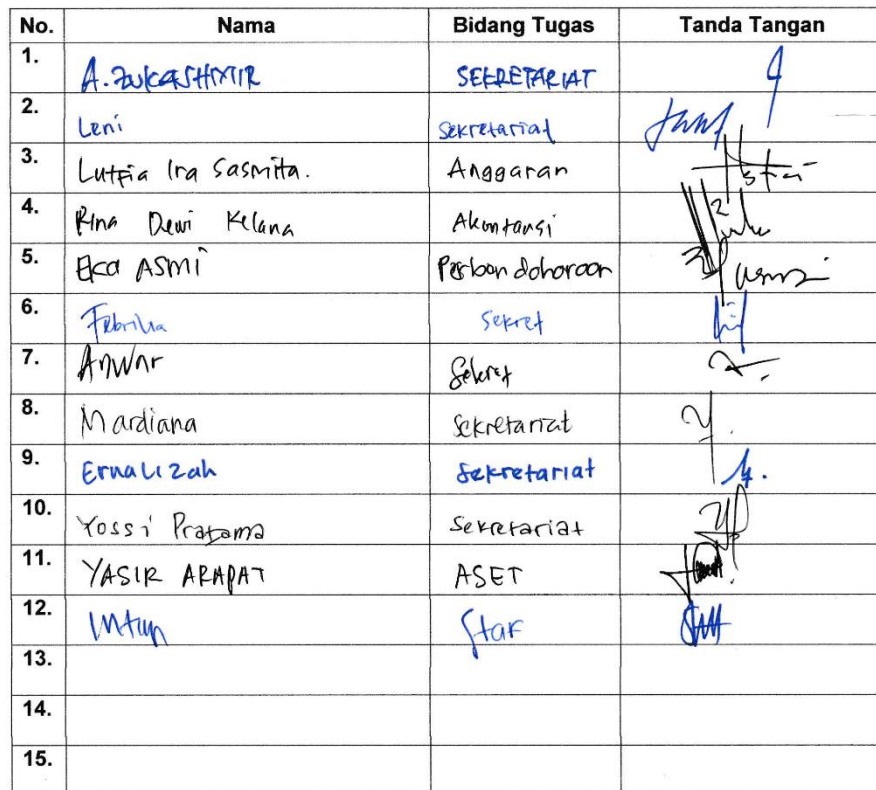 No. Nama Bidang Tugas Tanda Tangan
1. SEKRETARIAT
2. Leni Sekretariat
3. Lutfia Ira Sasmita. Anggaran
4. Rina Dewi Kelana Akuntansi
5. Eka ASMI
6. Febrilia Sekret
7. Anwar Sekret
8. Mardiana Sekretariat
9. Ernalizah Sekretariat
10. Yossi Pratama Sekretariat
11. YASIR ARAPAT ASET
12. Intan Staf
13.
14.
15.